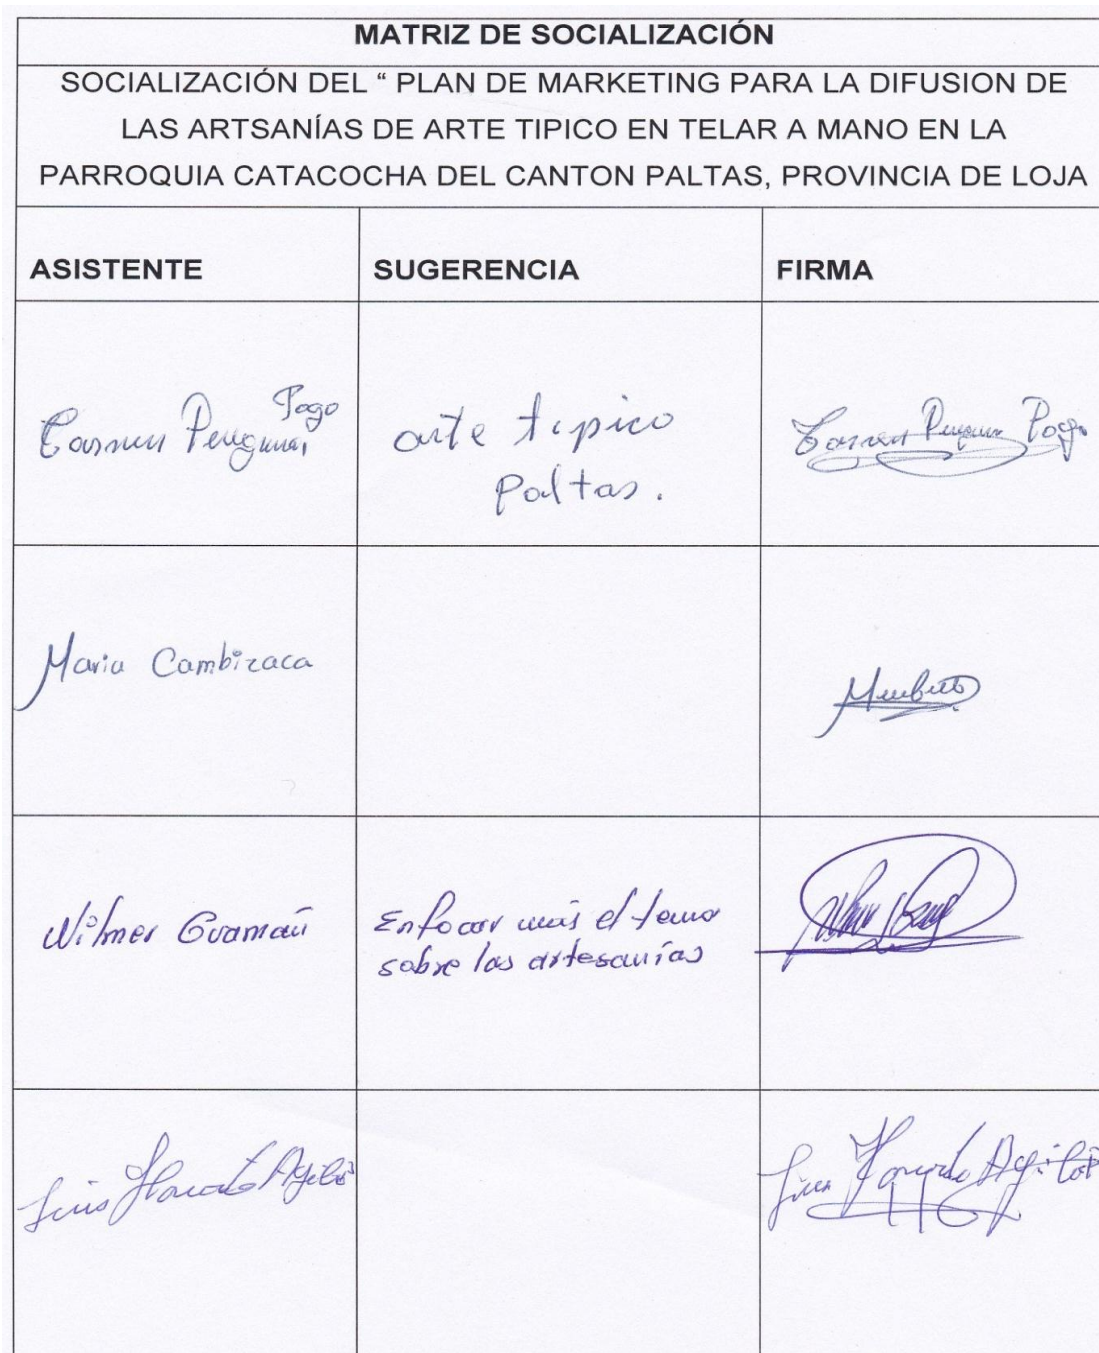 MATRIZ DE SOCIALIZACIÓN
SOCIALIZACIÓN DEL “ PLAN DE MARKETING PARA LA DIFUSION DE
LAS ARTSANÍAS DE ARTE TIPICO EN TELAR A MANO EN LA
PARROQUIA CATACOCHA DEL CANTON PALTAS, PROVINCIA DE LOJA
ASISTENTE SUGERENCIA FIRMA
Pogo
Carmen
arte tipico
Paltas.
Maria Cambizaca
Wilmer Guamán
Enfocar más el tema
sobre las artesanías
Luis